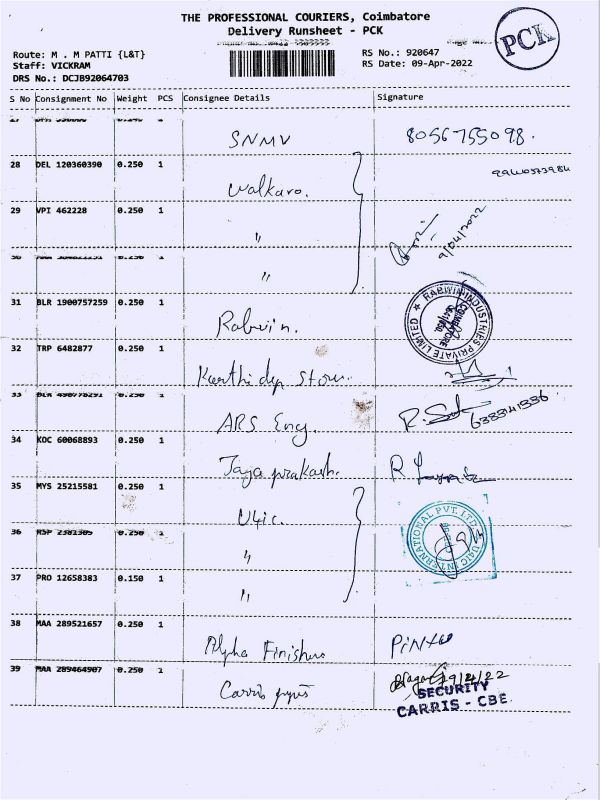 THE PROFESSIONAL COURIERS, Coimbatore
Delivery Runsheet - PCK
PCK
Route: M . M PATTI {L&T}
RS No.: 920647
Staff: VICKRAM
RS Date: 09-Apr-2022
DRS No.: DCJB92064703
S No Consignment No Weight PCS Consignee Details Signature
SNMV 8056755098.
28 DEL 120360390 0.250 1
Walkaro.
29 VPI 462228 0.250 1
"
9/04/2022
30
"
31 BLR 1900757259 0.250 1
Rabwin.
RABWIN INDUSTRIES PRIVATE LIMITED
COIMBATORE
32 TRP 6482877 0.250 1
33
ARS Eng.
34 KOC 60068893 0.250 1
Jaya prakash.
35 MYS 25215581 0.250 1
U4ic.
U4IC INTERNATIONAL PVT. LTD.
36
"
37 PRO 12658383 0.150 1
"
38 MAA 289521657 0.250 1
Alpha Finishers PiNtu
39 MAA 289464907 0.250 1
Carris
SECURITY
CARRIS - CBE.